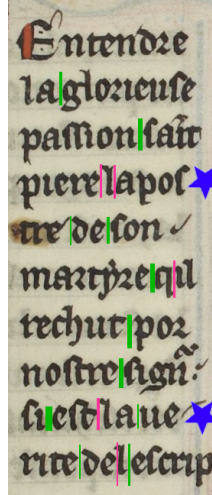 Entendre
la glorieuse
passion saīt
piere lapos
tre de son
martyre qil
rechut por
nostre sign̄.
si est laue
rite de lescrip